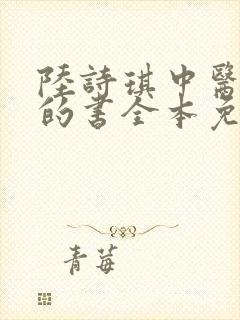 陸詩琪中醫
的書全本免
青莓